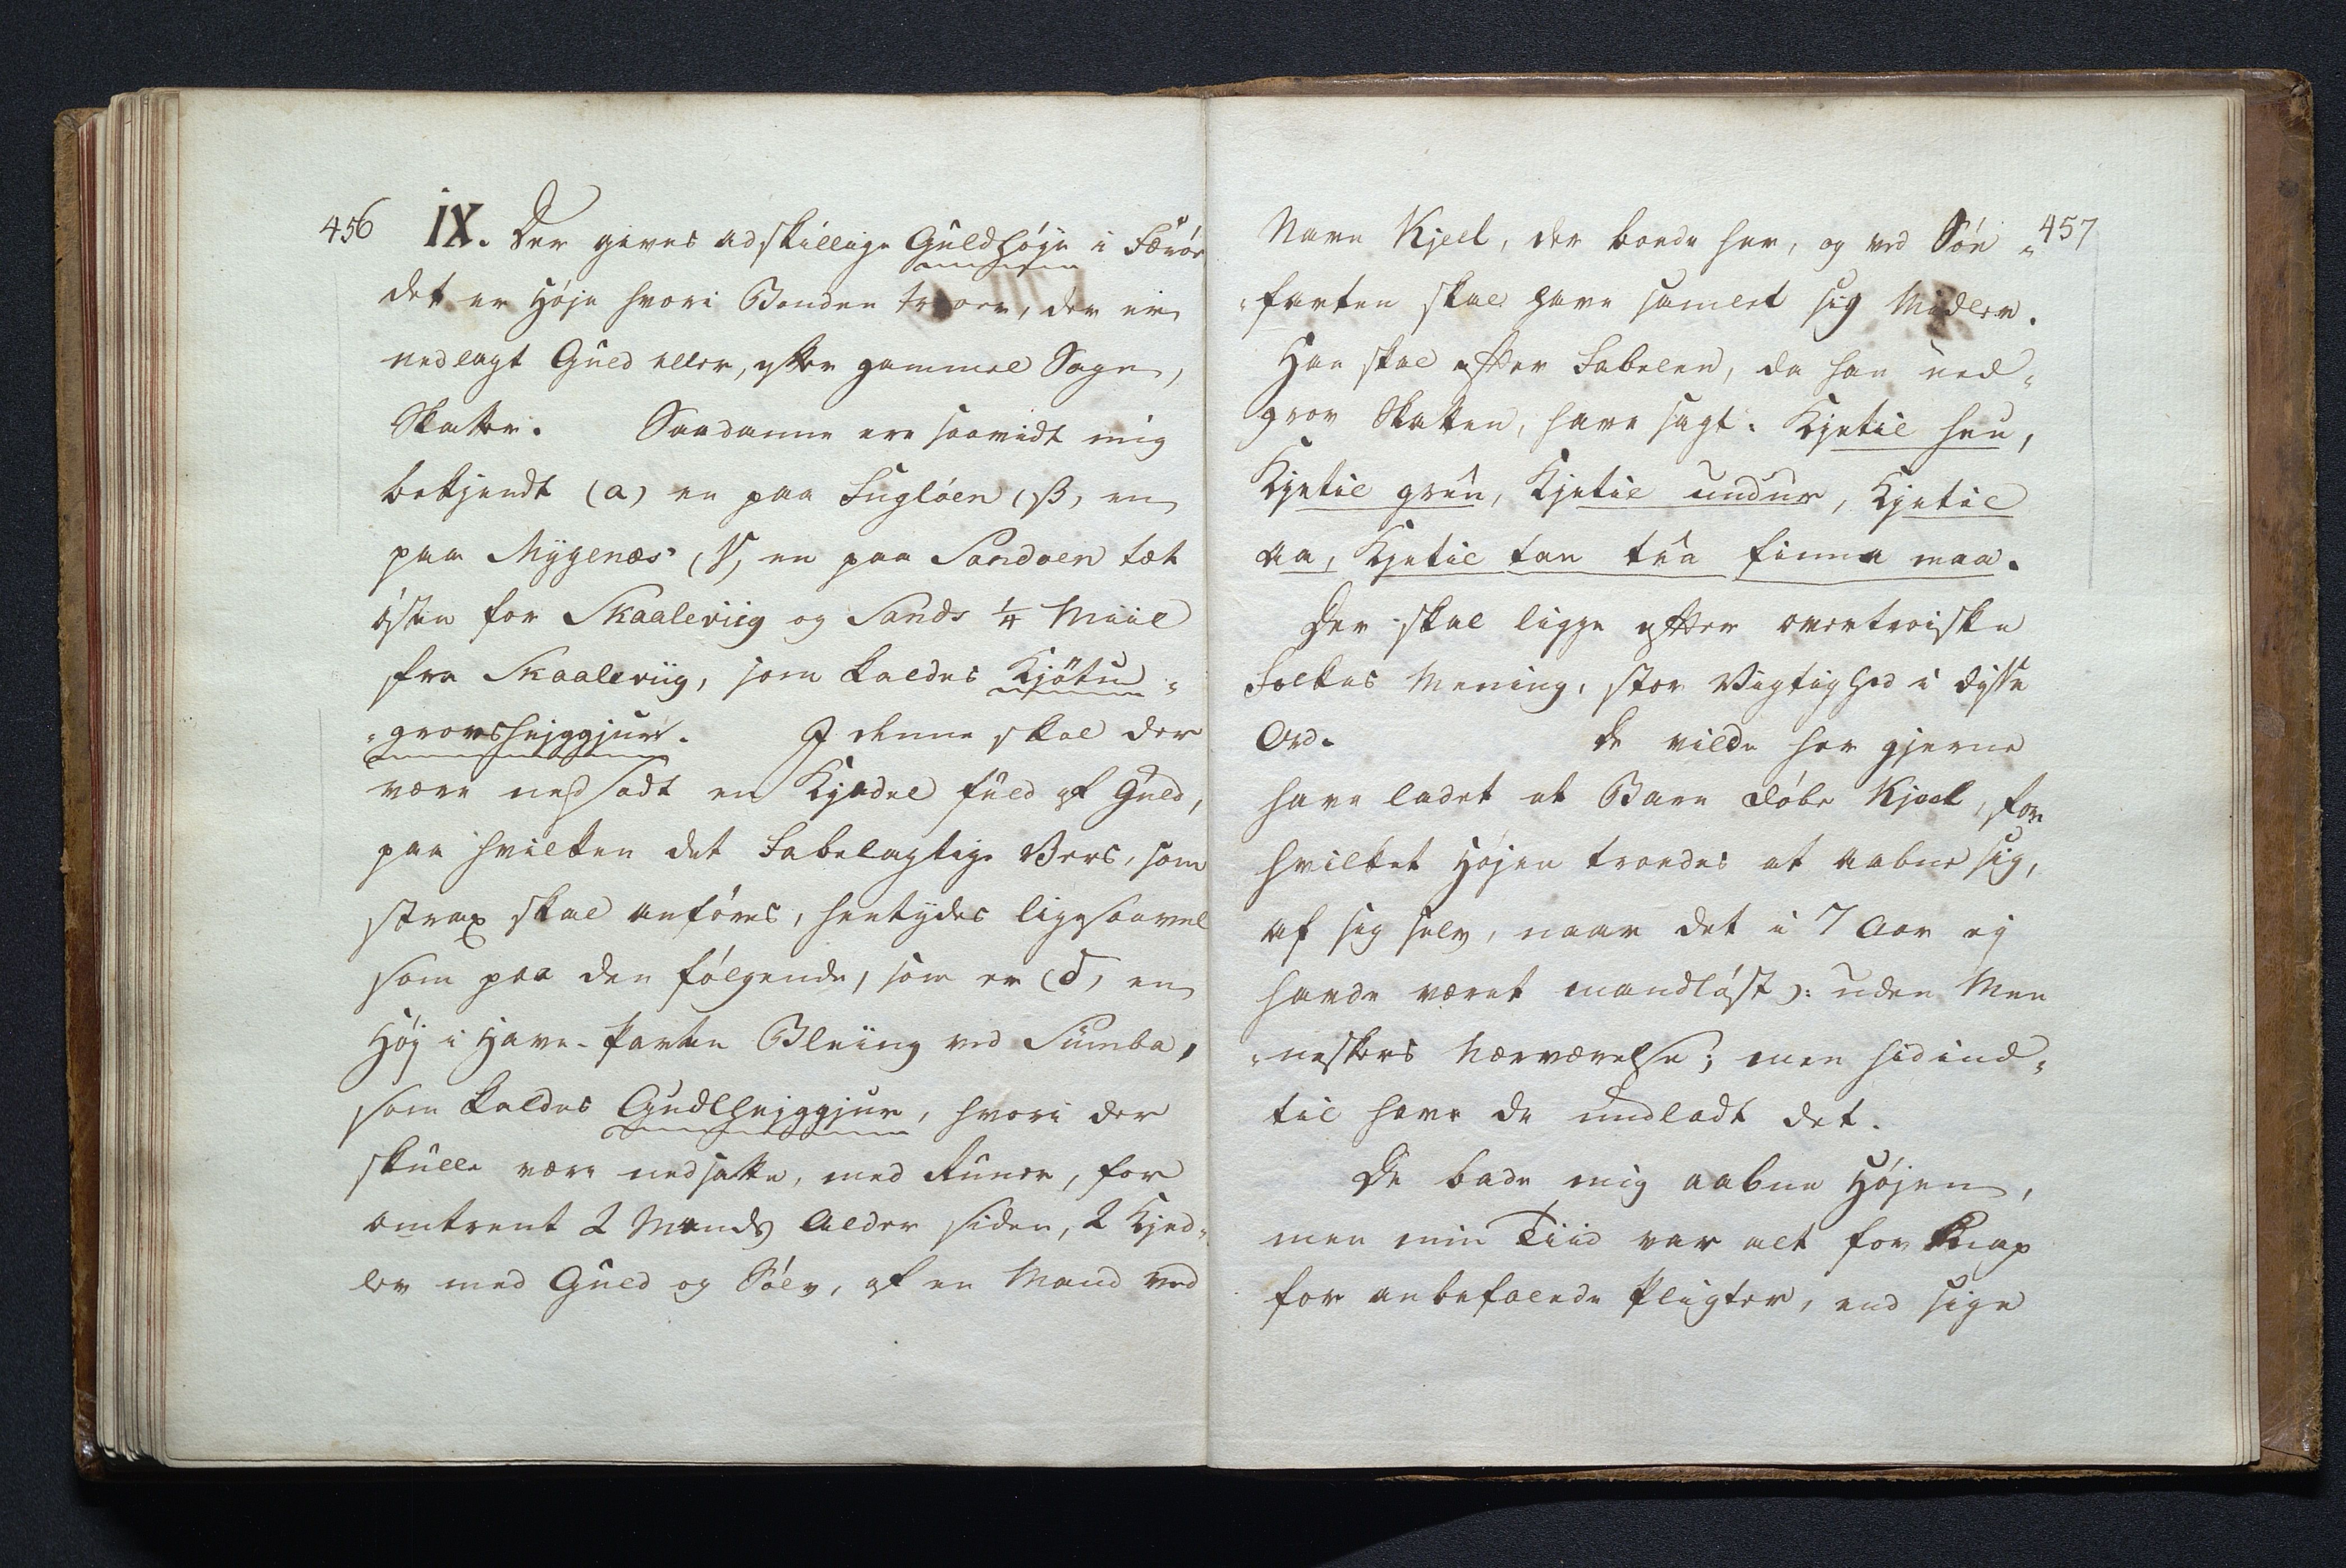 456 IX. Der gives adskillige Guldhøje i Færøe
det er Høje hvori Bonden troer, der er
nedlagt Guld eller, efter gammel Sagn,
Skatter. Saadanne ere saavidt mig
bekjendt (α) en paa Fugløen (β, en
paa Mygenæs (γ, en paa Sandøen tæt
østen for Skaaleviig og Sands ¼ Miil
fra Skaaleviig, som kaldes Kjøtu-
-grovshejggjur. I denne skal der
være nedsadt en Kjedel fuld af Guld,
paa hvilken det Fabelagtige Vers, som
strax skal anføres, hentydes ligesaavel
som paa den følgende, som er (δ, en
Høj i Have-Parten Bleiing ved Sumba,
som kaldes Gudlhejggjur, hvori der
skulle være nedsatte, med Runer, for
omtrent 2 Mands Alder siden, 2 Kjed-
ler med Guld og Sølv, af en Mand ved
Navn Kjeel, der boede her, og ved Søe- 457
-farten skal have samlet sig Midler.
Han skal efter Fabelen, da han ned-
grov Skatten, have sagt: Kjetil heu,
Kjetil greu, Kjetil undur, Kjetil
aa, Kjetil tan tea finna maa.
Der skal ligge efter overtroiske
Folkes Mening, stor Vigtighed i disse
Ord. De vilde her gjerne
have ladet et Barn døbe Kjeel, for
hvilket Højen troedes at aabne sig,
af sig selv, naar det i 7 Aar ej
havde været mandløst ɔ: uden Men
-neskers Nærværelse; men hidind-
til have de undladt det.
De bade mig aabne Højen,
men min Tiid var alt for knap
for anbefalede Pligter, end sige